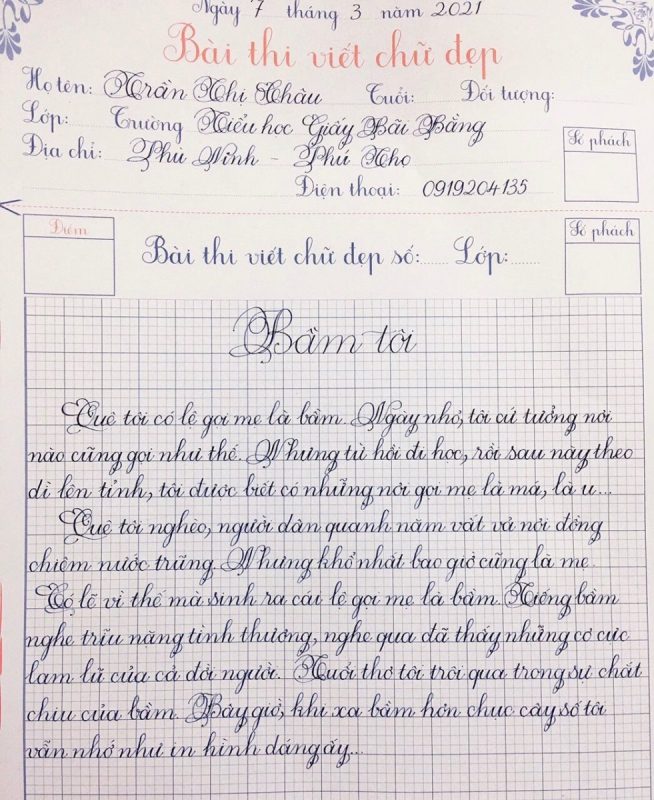 Ngày 7 tháng 3 năm 2021
Bài thi viết chữ đẹp
Họ tên: Trần Thị Châu Tuổi: Đối tượng:
Lớp: Trường Tiểu học Giấy Bãi Bằng
Địa chỉ: Phù Ninh - Phú Thọ
Số phách
Điện thoại: 0919204135
Điểm
Bài thi viết chữ đẹp số: Lớp:
Số phách
Bầm tôi
Quê tôi có lệ gọi mẹ là bầm. Ngày nhỏ, tôi cứ tưởng nơi
nào cũng gọi như thế. Nhưng từ hồi đi học, rồi sau này theo
dì lên tỉnh, tôi được biết có những nơi gọi mẹ là má, là u...
Quê tôi nghèo, người dân quanh năm vất vả nơi đồng
chiêm nước trũng. Nhưng khổ nhất bao giờ cũng là mẹ.
Có lẽ vì thế mà sinh ra cái lệ gọi mẹ là bầm. Tiếng bầm
nghe trĩu nặng tình thương, nghe qua đã thấy những cơ cực
lam lũ của cả đời người. Tuổi thơ tôi trôi qua trong sự chắt
chiu của bầm. Bây giờ, khi xa bầm hơn chục cây số tôi
vẫn nhớ như in hình dáng ấy...